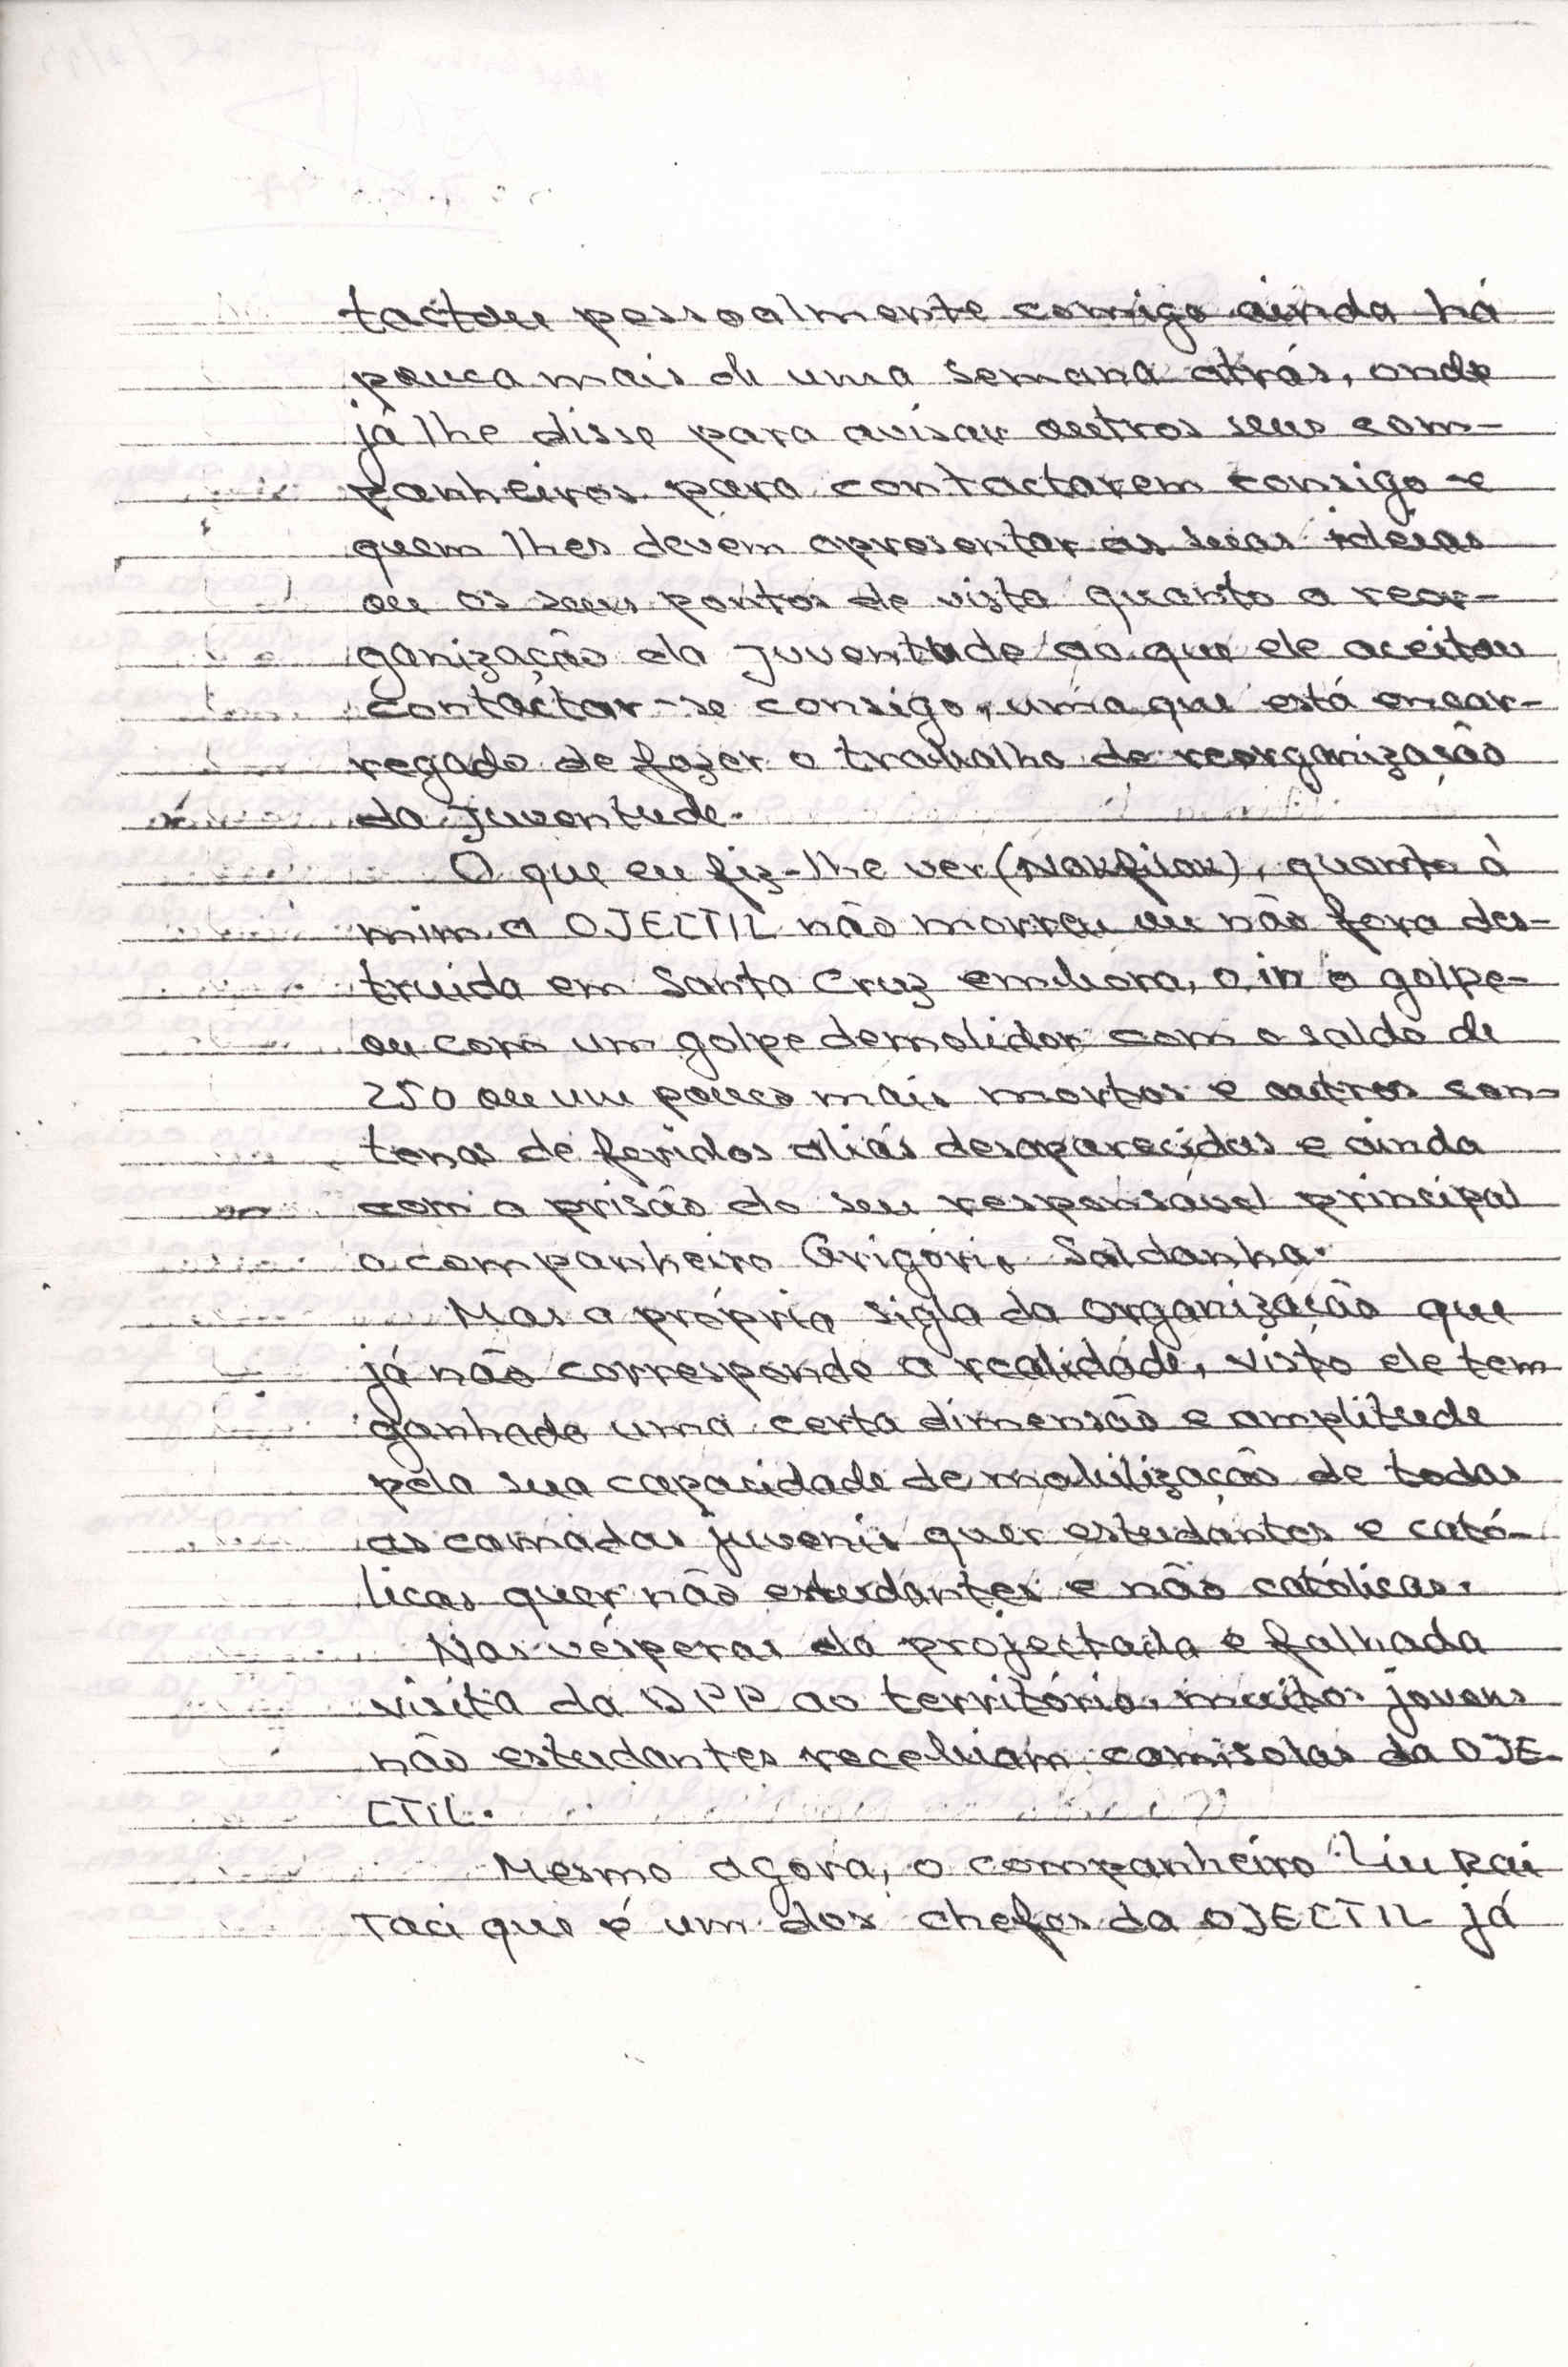 tactou pessoalmente comigo ainda há
pouca mais de uma semana atrás, onde
já lhe disse para avisar outros seus com-
panheiros para contactarem consigo e
quem lhes devem apresentar as suas ideias
ou os seus pontos de vista quanto a reor-
ganização da juventude ao que ele aceitou
contactar-se consigo, uma que está encar-
regado de fazer o trabalho de reorganização
da juventude.
O que eu fiz-lhe ver (Nakfilak), quanto à
mim a OJECTIL não morreu ou não fora des-
truida em Santa Cruz embora, o in o golpe-
ou com um golpe demolidor com o saldo de
250 ou um pouco mais mortos e outros cen-
tenas de feridos aliás desaparecidos e ainda
com a prisão do seu responsável principal
o companheiro Grigório Saldanha.
Mas a própria sigla da organização que
já não corresponde a realidade, visto ele tem
ganhado uma certa dimensão e amplitude
pela sua capacidade de mobilização de todas
as camadas juvenis quer estudantes e cató-
licas quer não estudantes e não católicas.
Nas vésperas da projectada e falhada
visita da DPP ao território, muitos jovens
não estudantes recebiam camisolas da OJE-
CTIL.
Mesmo agora, o companheiro Liu Rai
Taci que é um dos chefes da OJECTIL já